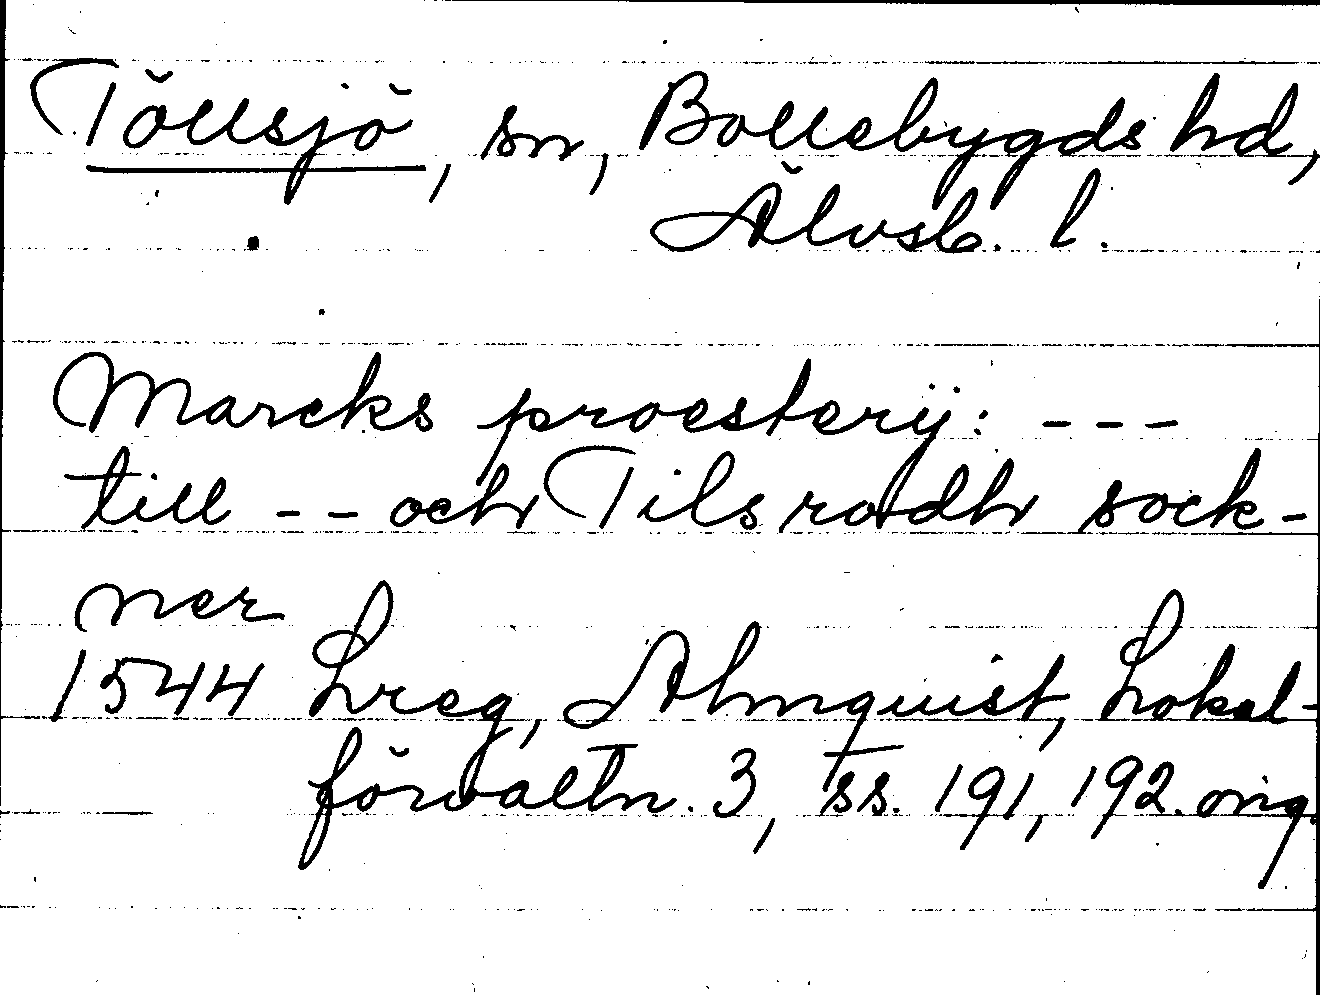 Töllsjö, sn, Bollebygds hd,
Älvsb. l.
Marcks proesterij: ---
till -- och Tilsradh sock-
ner
1544 Lreg, Almquist, Lokal-
förvaltn. 3, ss. 191, 192. orig.